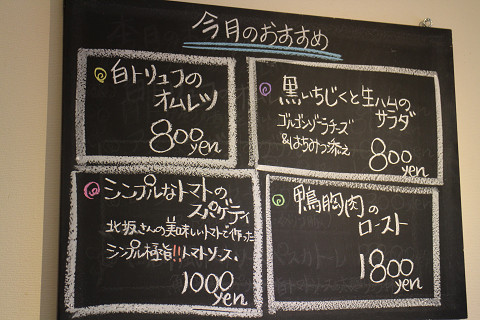 今月のおすすめ
白トリュフの
オムレツ
800yen
黒いちじくと生ハムの
サラダ
ゴルゴンゾーラチーズ
&はちみつ添え
800yen
シンプルなトマトの
スパゲティ
北坂さんの美味しいトマトで作った
シンプル極旨!!トマトソース。
1000
yen
鴨胸肉の
ロースト
1800
yen